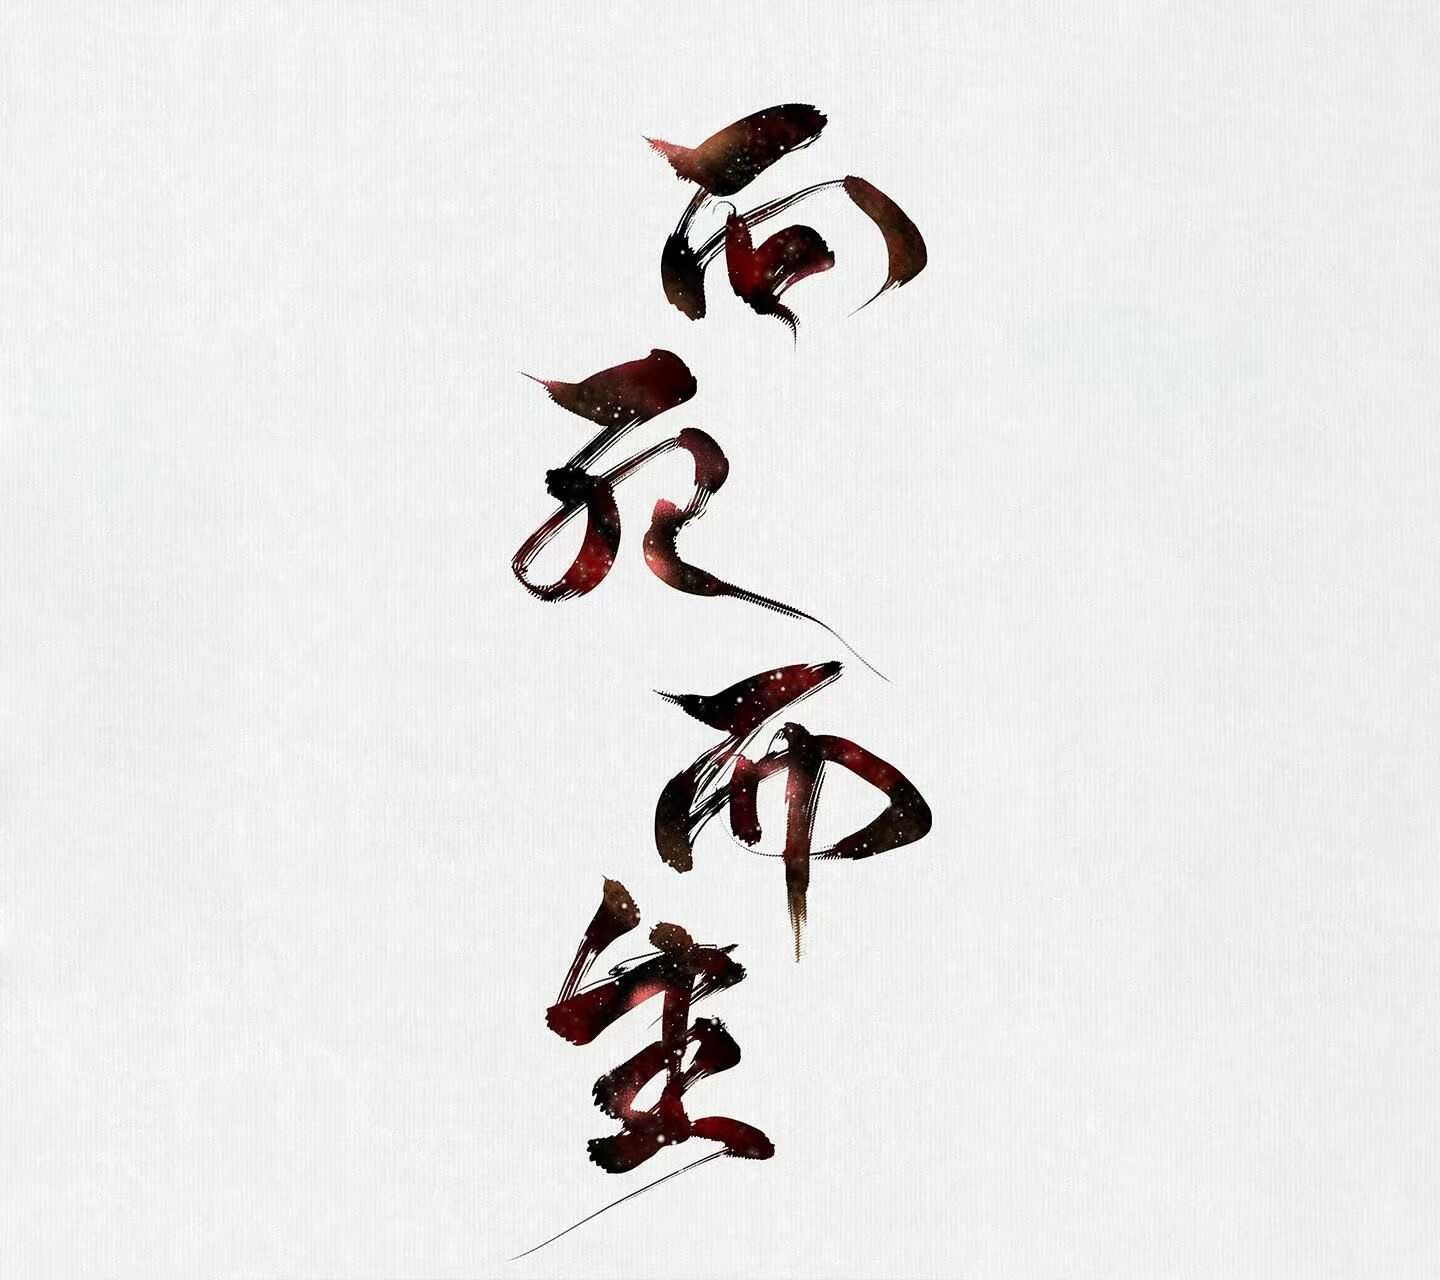 向死而生